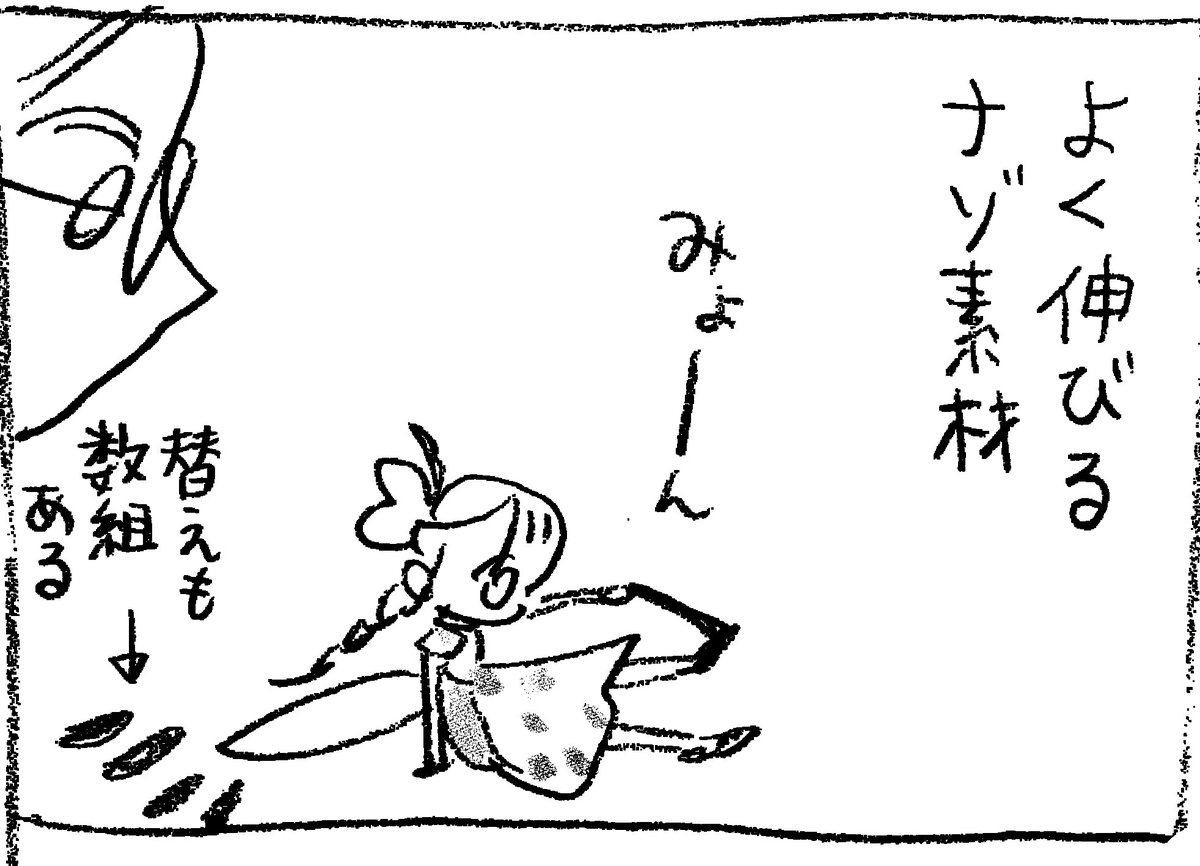 よく伸びる
ナゾ素材
みょーん
替えも
数組
ある